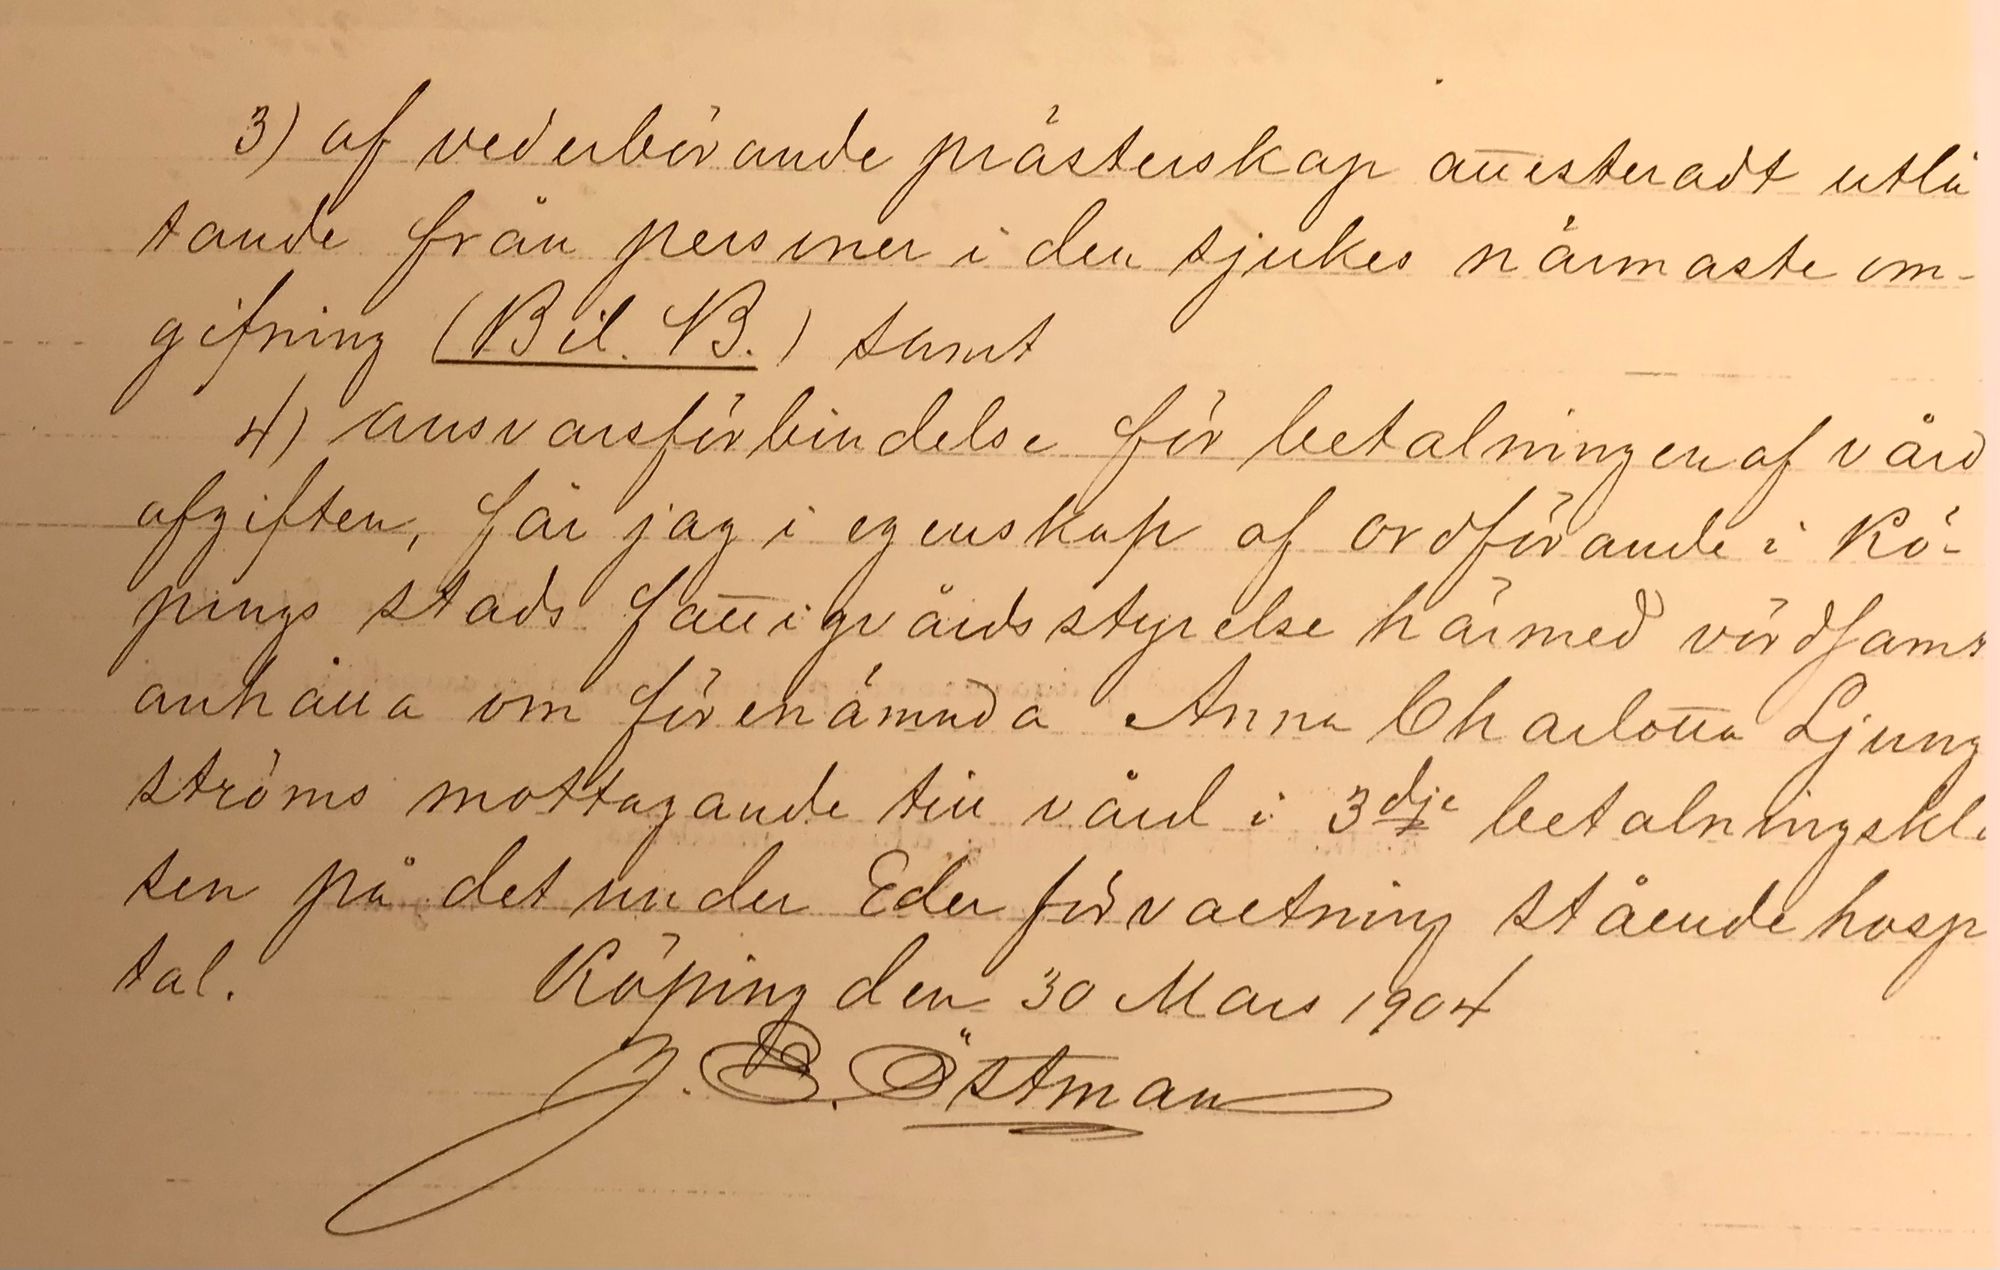 3) af vederbörande prästerskap attesteradt utlå
tande från personer i den sjukes närmaste om-
gifning (Bil. B.) samt
4) ansvarsförbindelse för betalningen af vård
afgiften, får jag i egenskap af ordförande i Kö-
pings stads fattigvårdsstyrelse härmed vördsamt
anhålla om förenämnda Anna Charlotta Ljung
ströms mottagande till vård i 3dje betalningskla
sen på det under Eder förvaltning stående hosp
tal. Köping den 30 Mars 1904
J. E. Östman